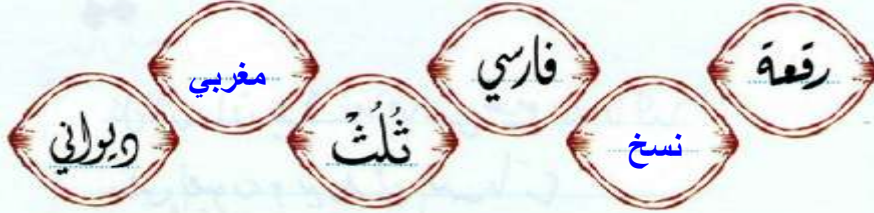 رقعة
نسخ
فارسي
ثُلُثْ
مغربي
ديواني